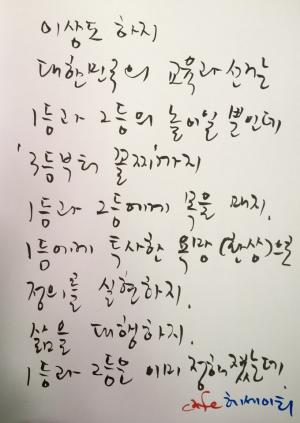 이상도 하지
대한민국의 교육과 선거는
1등과 2등의 놀이일 뿐인데
'3등부터 꼴찌'까지
1등과 2등에게 목을 매지.
1등에게 투사한 욕망(환상)으로
정의를 실현하지.
삶을 대행하지.
1등과 2등은 이미 정해졌는데.
cafe 헤세이티